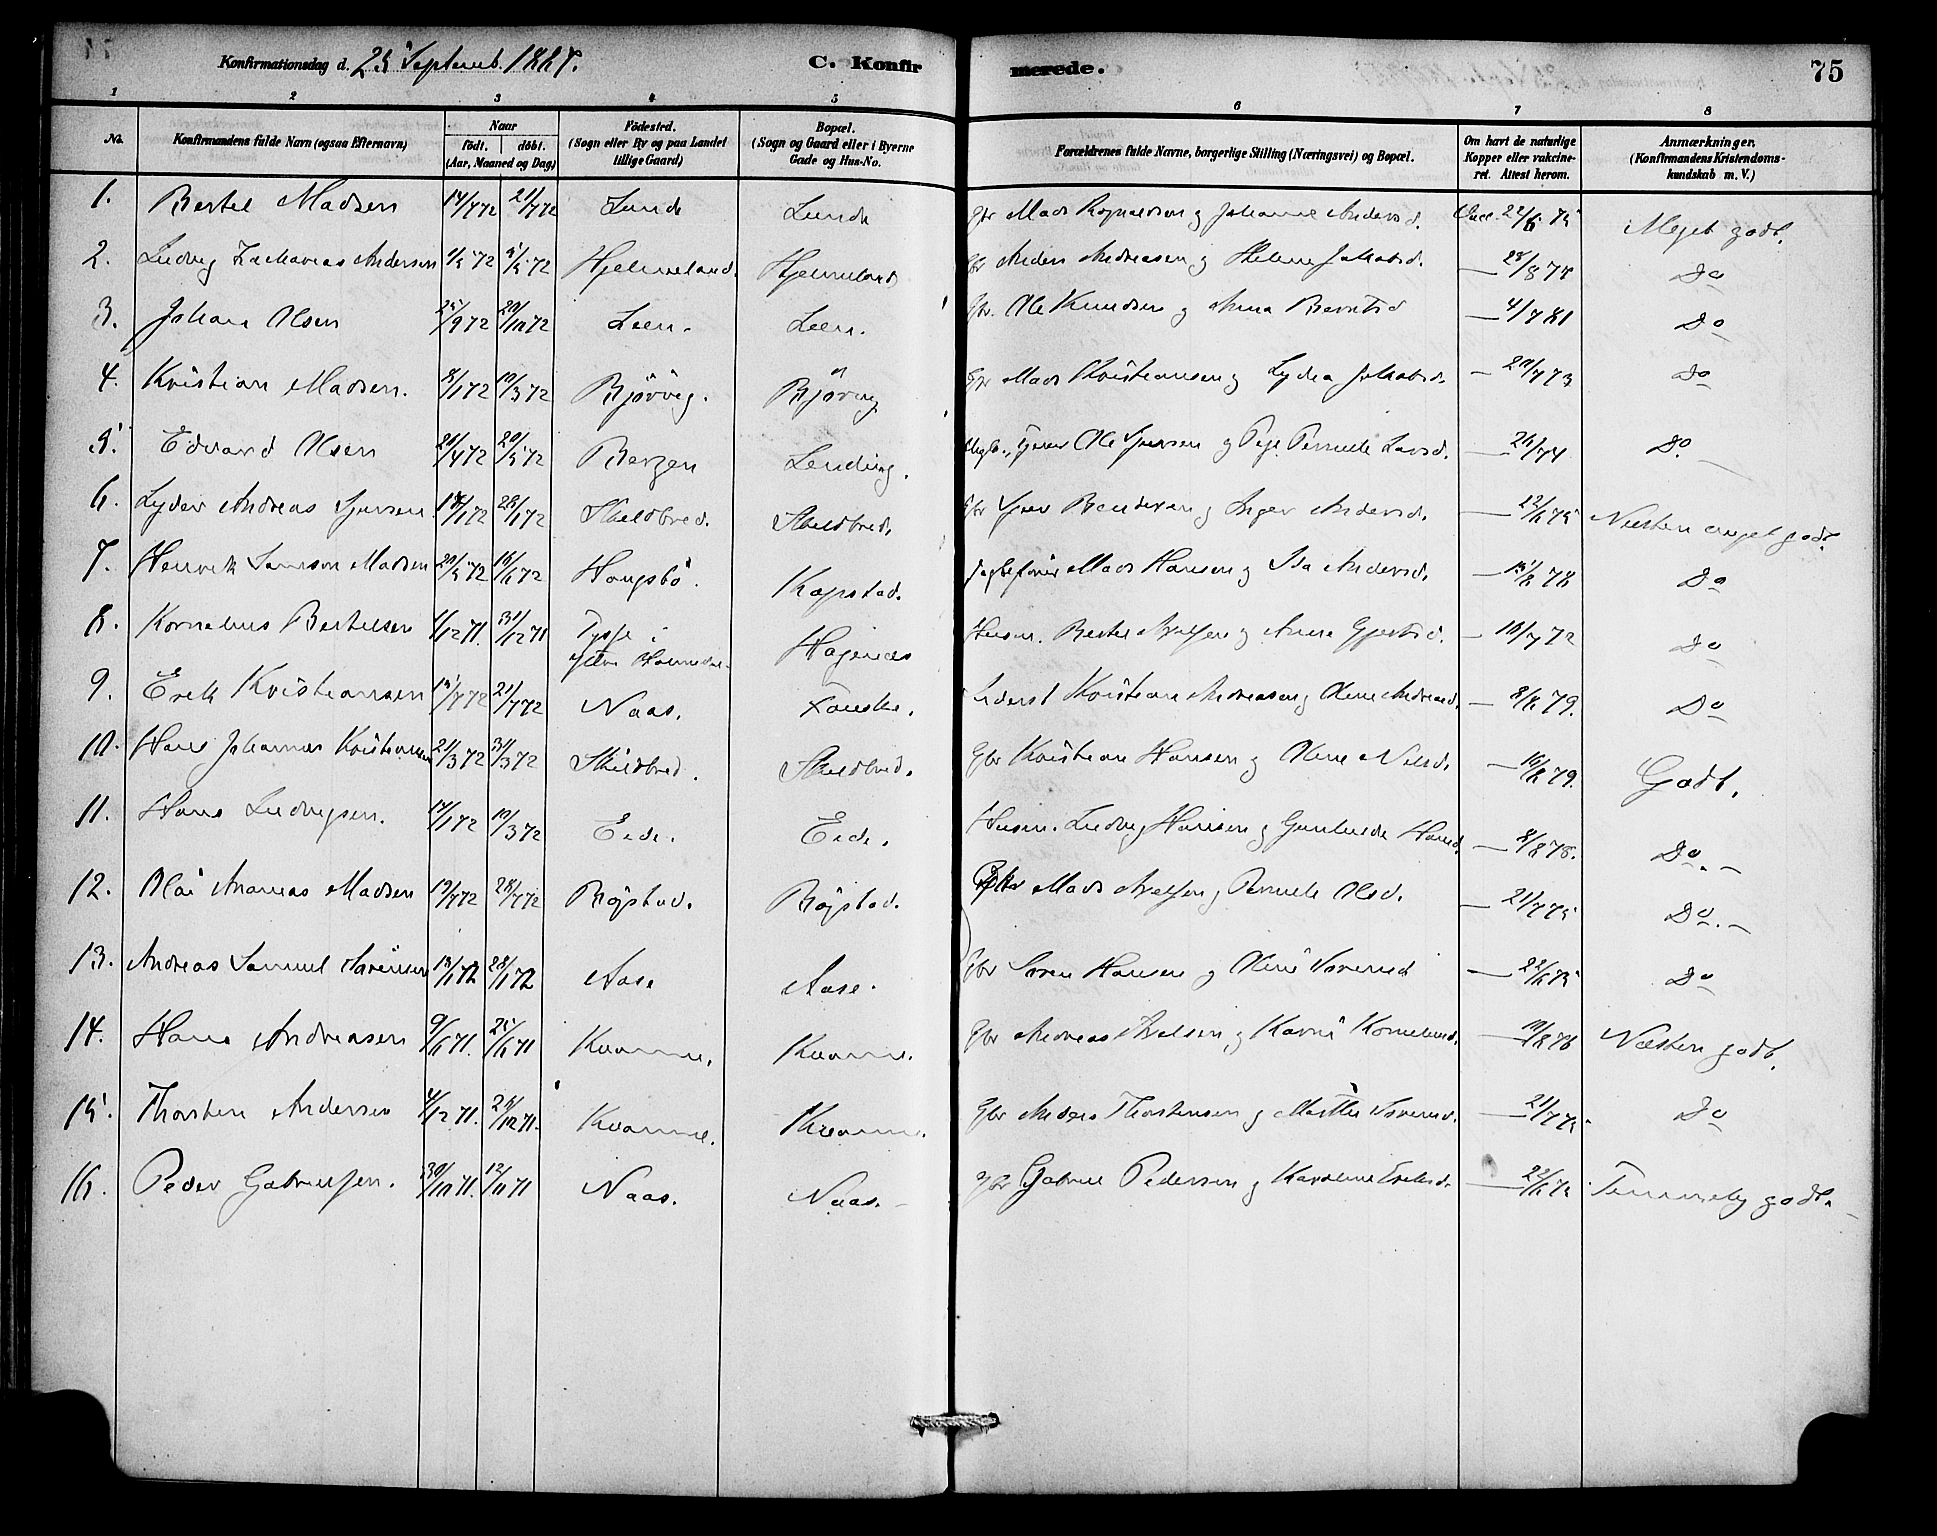 Konfirmationsdag d. 25 Septemb. 1887. C. Konfirmerede. 75
1 2 3 4 5 6 7 8
No. Konfirmandens fulde Navn (ogsaa Efternavn) Naar födt. döbt. (Aar, Maaned og Dag) Födested. (Sogn eller By og paa Landet tillige Gaard) Bopæl. (Sogn og Gaard eller i Byerne Gade og Hus-No. Forældrenes fulde Navne, borgerlige Stilling (Næringsvei) og Bopæl. Om havt de naturlige Kopper eller vakcineret. Attest herom. Anmærkninger. (Konfirmandens Kristendomskundskab m. V.)
1. Bertel Madsen 14/7 72 21/7 72 Lunde Lunde Gbr Mads Rognaldson og Johanne Andersd. Vacc. 22/6 75 Meget godt.
2. Ludvig Zacharias Andersen 1/5 72 5/5 72 Hjelmeland. Hjelmeland Gbr Anders Andreasen og Helene Jakobsd. — 28/8 78 Do
3. Johan Olsen 25/9 72 20/10 72 Leen. Leen. Gbr. Ole Knudsen og Anna Berntsd — 4/7 81 Do
4. Kristian Madsen. 8/1 72 10/3 72 Björvig. Björvig Gbr Mads Kristiansen og Lydia Jakobsd. — 20/7 73 Do
5. Edvard Olsen 20/4 72 20/5 72 Bergen Lending. Ole Sjursen og Pige Pernille Larsd. Do.
6. Lyder Andreas Sjursen 18/1 72 28/1 72 Skeldbred. Skeldbred. Gbr Sjur Bendixen og Inger Andersd. — 22/6 75 Næsten meget godt.
7. Henrik Samson Madsen 20/5 72 16/6 72 Haugsbö. Kapstad. Mads Hansen og Ida Andersd. Do
8. Kornelius Bertelsen 1/12 71. 31/12 71 Tysse i ytre Holmedal. Hagenæs Husm. Bertel og Anna Gjertsd. — 16/7 72 Do
9. Erik Kristiansen 15/7 72 21/7 72 Naas. Fauske. Kristian Andreasen og Oline Andreasd. — 8/8 79. Do
10. Hans Johannes Kristiansen 21/3 72 31/3 72 Skeldbred. Skeldbred. Gbr Kristian Hansen og Oline Nilsd. — 16/8 79. Godt.
11. Hans Ludvigsen. 14/1 72 10/3 72 Eide. Eide. Husm. Ludvig Hansen og Gunhilde Hansd. — 8/8 78. Do. —
12. Ananias Madsen 19/7 72 28/7 72 Röystad. Röystad. Mads og Pernille Olsd. — 21/7 75 Do. —
13. Andreas Samuel Sörensen 18/1 72 28/1 72 Aase Aase. Gbr Sören Hansen og Oline Sörensd — 22/6 75 Do
14. Hans Andreasen 9/6 71. 25/6 71 Kvamme. Kvamme. Gbr Andreas og Karen Korneliusd. — 10/8 76 Næsten godt.
15. Thorsten Andersen 4/12 71. 26/12 71. Kvamme. Kvamme. Gbr Anders Thorstensen og Marthe Sörensd. — 21/7 75. Do
16. Peder Gabrielsen. 30/10 71. 12/11 71 Naas. Naas. — Gbr Gabriel Pedersen og Karoline Eriksd. — 22/6 75 Temmelig godt. —